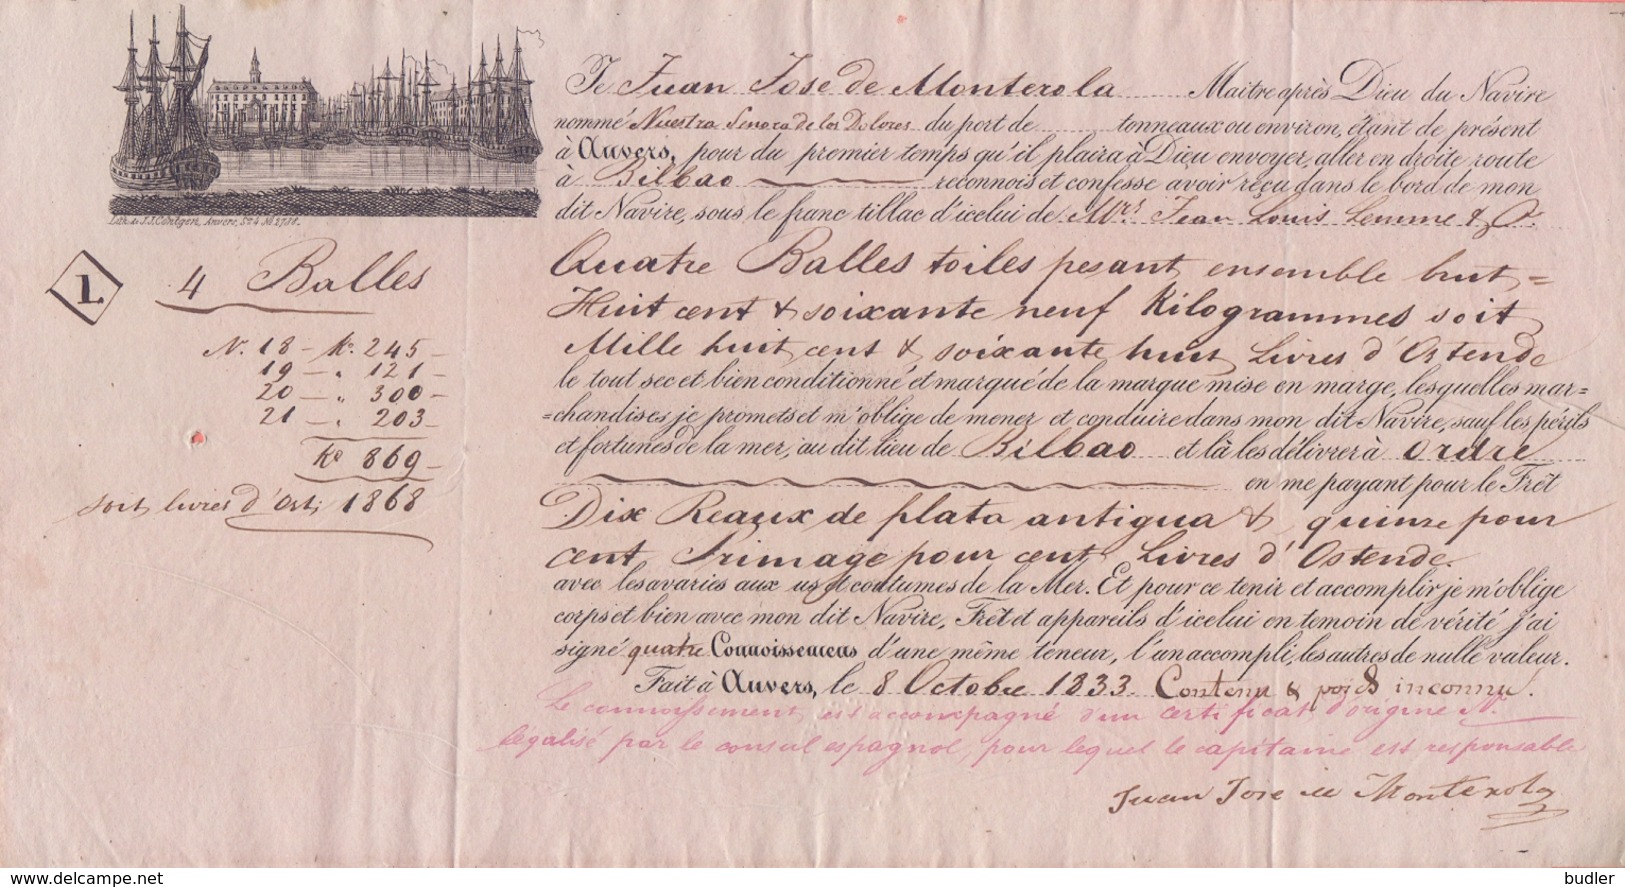 Lith. de J.J. Contgen, Anvers,
1.
4 Balles
N. 18 - K. 245 -
19 - " 121 -
20 - " 300 -
21 - " 203 -
Ko 869 -
soit livres d'Ost; 1868
Je Juan Jose de Monterola Maitre après Dieu du Navire
nommé Nuestra Senora de los Dolores du port de tonneaux ou environ, étant de présent
à Anvers, pour du premier temps qu'il plaira à Dieu envoyer, aller en droite route
à Bilbao reconnois et confesse avoir reçu dans le bord de mon
dit Navire, sous le franc tillac d'icelui de Mrs. Jean Louis Lemme & Co.
Quatre Balles toiles pesant ensemble huit =
Huit cent & soixante neuf Kilogrammes soit
Mille huit cent & soixante huit Livres d'Ostende
le tout sec et bien conditionné et marqué de la marque mise en marge, lesquelles mar=
=chandises je promets et m'oblige de mener et conduire dans mon dit Navire, sauf les périls
et fortunes de la mer, au dit lieu de Bilbao et là les délivrer à Ordre
en me payant pour le Frêt
Dix Reaux de plata antigua & quinze pour
cent Primage pour cent Livres d'Ostende.
avec les avaries aux us et coutumes de la Mer. Et pour ce tenir et accomplir je m'oblige
corps et bien avec mon dit Navire, Frêt et appareils d'icelui en temoin de vérité j'ai
signé quatre Connoissemens d'une même teneur, l'un accompli, les autres de nulle valeur.
Fait à Anvers, le 8 Octobre 1833. Contenu & poids inconnu.
Le connoissement est accompagné d'un certificat d'origine No.
légalisé par le consul espagnol, pour lequel le capitaine est responsable
Juan Jose de Monterola
budler
www.delcampe.net